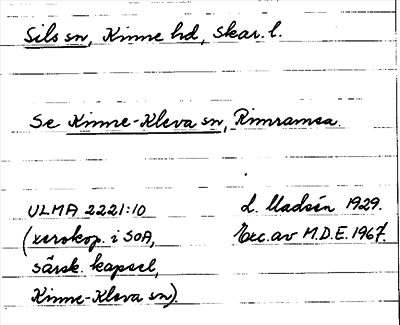 Sils sn, Kinne hd, Skar. l.
Se Kinne-Kleva sn, Rimramsa.
ULMA 2221:10
(xerokop. i SOA,
särsk. kapsel,
Kinne-Kleva sn).
L. Madsén 1929.
Exc. av M.D.E. 1967.